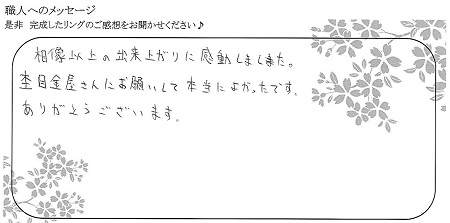 職人へのメッセージ
是非 完成したリングのご感想をお聞かせください♪
相像以上の出来上がりに感動しました。
杢目金屋さんにお願いして本当によかったです。
ありがとうございます。